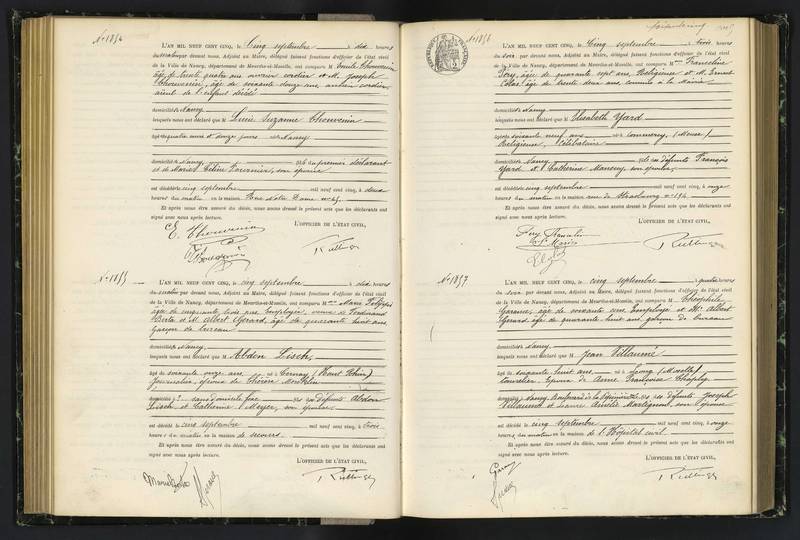 No 1854
L'AN MIL NEUF CENT CINQ, le Cinq septembre à dix heures
du matin par devant nous, Adjoint au Maire, délégué faisant fonctions d'officier de l'état civil
de la Ville de Nancy, département de Meurthe-et-Moselle, ont comparu M Emile Thouvenin
âgé de trente quatre ans ouvrier cordier et M. Joseph
Thouvenin, âgé de soixante douze ans ancien cordier
aïeul de l'enfant décédé
domiciliés à Nancy
lesquels nous ont déclaré que M Lucie Suzanne Thouvenin
âgée quatre mois et douze jours née à Nancy
domiciliée à Nancy fille du premier déclarant
et de Marie Céline Fournier, son épouse
est décédée cinq septembre mil neuf cent cinq, à deux
heures du matin en la maison Rue Notre Dame n° 45
Et après nous être assuré du décès, nous avons dressé le présent acte que les déclarants ont
signé avec nous après lecture.
L'OFFICIER DE L'ÉTAT CIVIL,
E. Thouvenin
No 1855
L'AN MIL NEUF CENT CINQ, le cinq septembre à dix heures
du matin par devant nous, Adjoint au Maire, délégué faisant fonctions d'officier de l'état civil
de la Ville de Nancy, département de Meurthe-et-Moselle, ont comparu Mme Marie
âgée de cinquante trois ans employée, veuve de Ferdinand
et M. Albert Gérard, âgé de quarante huit ans
garçon de bureau
domiciliés à Nancy
lesquels nous ont déclaré que M Abdon Lisch,
âgé de soixante onze ans né à Cernay (Haut Rhin)
Journalier, époux de Thérèse
domicilié à ? sans domicile fixe fils des défunts Abdon
Lisch et Catherine Meyer, son épouse
est décédé cinq septembre mil neuf cent cinq, à trois
heures du matin en la maison de secours
Et après nous être assuré du décès, nous avons dressé le présent acte que les déclarants ont
signé avec nous après lecture.
L'OFFICIER DE L'ÉTAT CIVIL,
No 1856
L'AN MIL NEUF CENT CINQ, le Cinq septembre à trois heures
du soir par devant nous, Adjoint au Maire, délégué faisant fonctions d'officier de l'état civil
de la Ville de Nancy, département de Meurthe-et-Moselle, ont comparu Mme Franceline
Fery, âgée de quarante sept ans, Religieuse et M. Ernest
âgé de trente deux ans commis à la Mairie
domiciliés à Nancy
lesquels nous ont déclaré que M Elisabeth Yard
âgée de soixante neuf ans née à Commercy (Meuse)
Religieuse, célibataire
domiciliée à Nancy fille des défunts François
Yard et Catherine Mangeny, son épouse,
est décédée cinq septembre mil neuf cent cinq, à onze
heures du matin en la maison rue de Strasbourg n° 194
Et après nous être assuré du décès, nous avons dressé le présent acte que les déclarants ont
signé avec nous après lecture.
L'OFFICIER DE L'ÉTAT CIVIL,
No 1857
L'AN MIL NEUF CENT CINQ, le cinq septembre à quatre heures
du soir par devant nous, Adjoint au Maire, délégué faisant fonctions d'officier de l'état civil
de la Ville de Nancy, département de Meurthe-et-Moselle, ont comparu M Théophile
Garanne, âgé de soixante ans employé et M. Albert
Gérard âgé de quarante huit ans, garçon de bureau
domiciliés à Nancy
lesquels nous ont déclaré que M Jean Villaumé
âgé de soixante huit ans né à (Moselle)
tonnelier, époux de Anne Françoise
domicilié à Nancy Boulevard de la Pépinière fils des défunts Joseph
Villaumé et Jeanne Amélie Martignon, son épouse
est décédé cinq septembre mil neuf cent cinq, à onze
heures du matin en la maison de l'Hôpital civil
Et après nous être assuré du décès, nous avons dressé le présent acte que les déclarants ont
signé avec nous après lecture.
L'OFFICIER DE L'ÉTAT CIVIL,